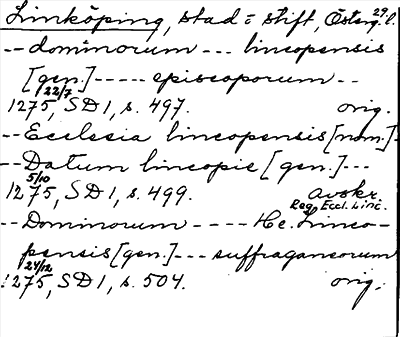 Linköping, stad = stift, Österg. l. 29.
-- dominorum --- lincopensis
[gen.] ----- episcoporum --
22/7
1275, SD 1, s. 497. orig.
-- Ecclesia lincopensis [nom.] -
-- Datum lincopie [gen.] ---
5/10
1275, SD 1, s. 499. avskr.
Reg. Eccl. Linc.
-- Dominorum ---- He. Linco-
pensis [gen.] --- suffraganeorum
24/12
1275, SD 1, s. 504. orig.